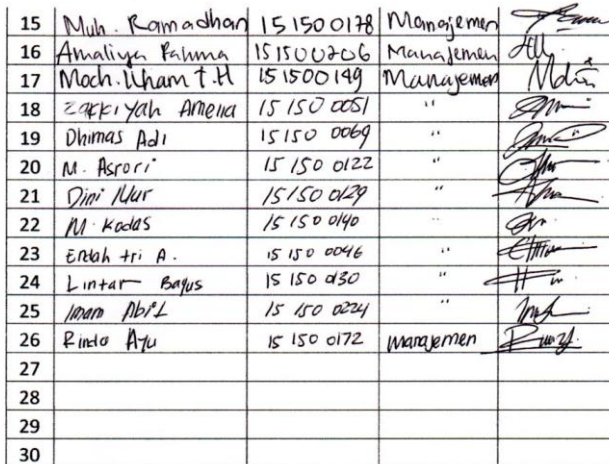 15 Muh. Ramadhan 151500178 Manajemen
16 Amaliya Rahma 151500206 Manajemen
17 Moch. Ilham T.H 151500149 Manajemen
18 Zakkiyah Amelia 15 150 0051 "
19 Dhimas Adi 15 150 0069 "
20 M. Asrori 15 150 0122 "
21 Dini Nur 15 150 0129 "
22 M. Kodas 15 150 0140 "
23 Endah tri A. 15 150 0046 "
24 Lintar Bagus 15 150 0130 "
25 Imam Abil 15 150 0224 "
26 Rinda Ayu 15 150 0172 Manajemen
27
28
29
30